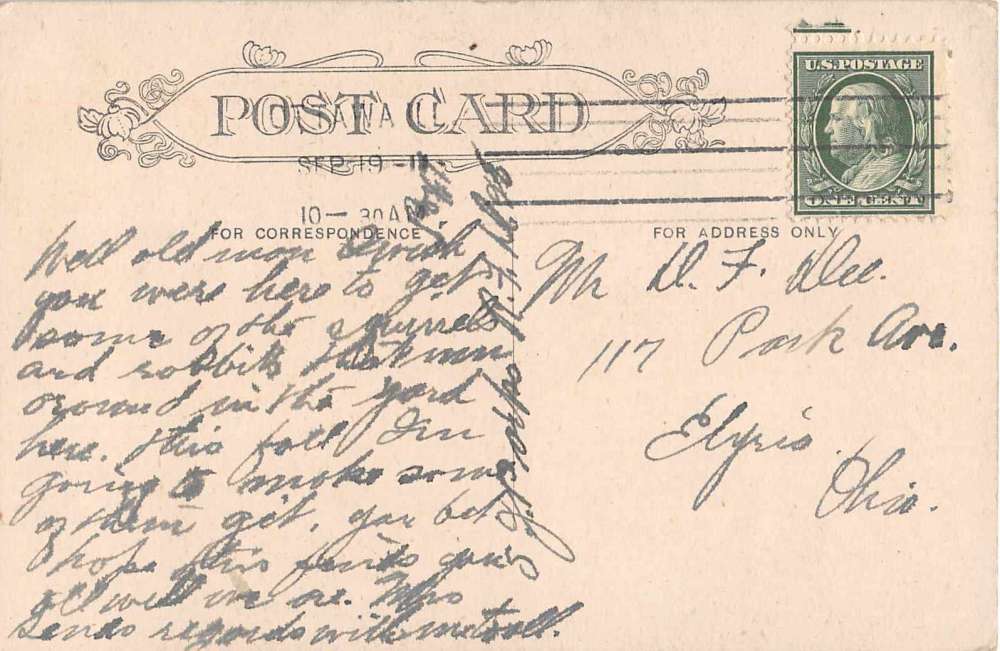 POST CARD
OTTAWA ILL
SEP 19
10 — 30 AM
U.S. POSTAGE
ONE CENT
FOR CORRESPONDENCE
FOR ADDRESS ONLY
Well old man I wish
you were here to get
some of the squirrels
and rabbits that run
around in the yard
here. this fall Im
going to make some
of them git. you bet
hope this finds you
all well we are. Mrs
sends regards with me to all.
Mr D. F. Dee.
117 Park Ave.
Elyria
Ohio.